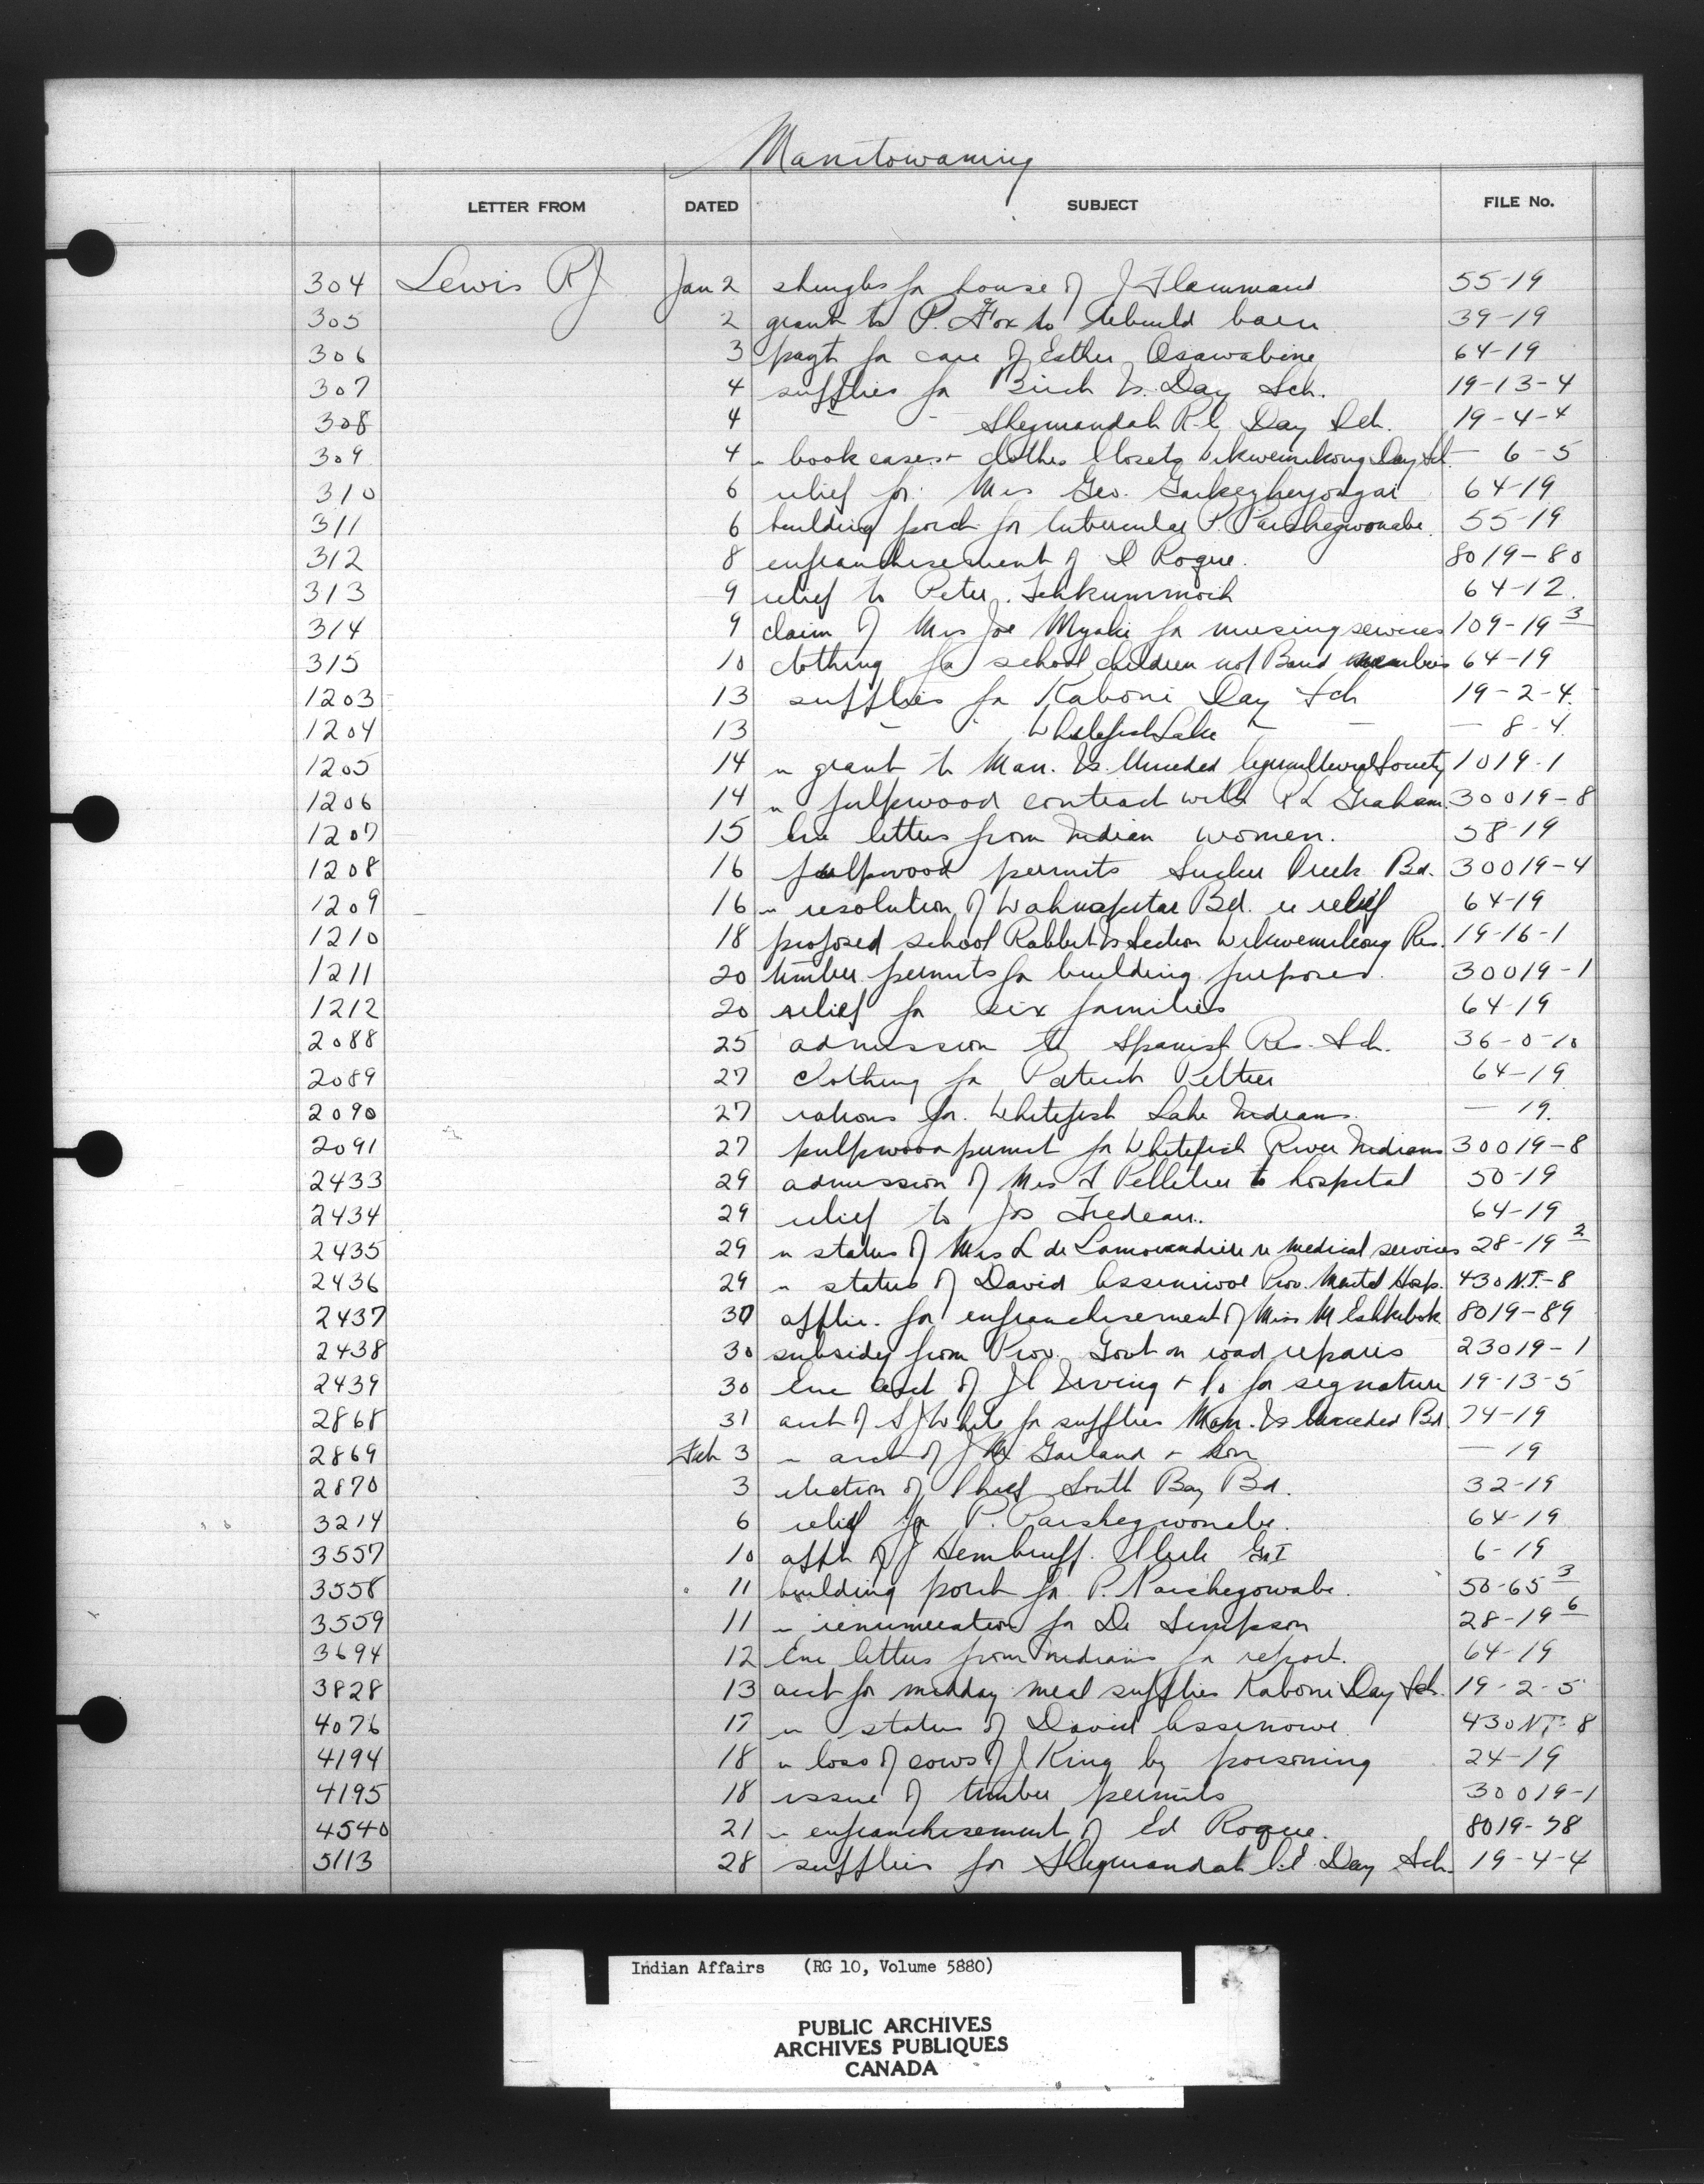 Manitowaning
LETTER FROM DATED SUBJECT FILE No.
304 Lewis RJ Jan 2 shingles for house of J Flammand 55-19
305 2 grant to P. Fox to rebuild barn 39-19
306 3 payt for care of Esther Osawabine 64-19
307 4 supplies for Birch Is. Day Sch. 19-13-4
308 4 " " Shegwandah R.C. Day Sch. 19-4-4
309 4 " book cases + clothes closets Wikwemikong Day Sch — 6-5
310 6 relief for Mrs Geo. 64-19
311 6 building porch for tubercular P. Paishegwonabe 55-19
312 8 enfranchisement of Roque. 8019-80
313 9 relief to Peter 64-12.
314 9 claim of Mrs Joe Myaki for nursing services 109-19 3
315 10 clothing for school children not Band members 64-19
1203 13 supplies for Kaboni Day Sch 19-2-4.
1204 13 " " Whitefish Lake " — — 8-4.
1205 14 re grant to Man. Is. Unceded Agricultural Society 1019-1
1206 14 re pulpwood contract with Graham. 30019-8
1207 15 Enc letters from Indian women. 58-19
1208 16 pulpwood permits Sucker Creek Bd. 30019-4
1209 16 re resolution of Wahnapitae Bd. re relief 64-19
1210 18 proposed school Rabbit Is Section Wikwemikong Res. 19-16-1
1211 20 timber permits for building purposes. 30019-1
1212 20 relief for six families 64-19
2088 25 admission to Spanish Res. Sch. 36-0-10
2089 27 clothing for Patrick Peltier 64-19
2090 27 rations for Whitefish Lake Indians. — 19.
2091 27 pulpwood permit for Whitefish River Indians 30019-8
2433 29 admission of Mrs Pelletier to hospital 50-19
2434 29 relief to Jos Trudeau. 64-19
2435 29 re status of Mrs L de Lamorandiere re medical services 28-19 2
2436 29 re status of David Assiniwe Prov. Mental Hosp. 430 N.T.-8
2437 30 applic. for enfranchisement of Miss M Eshkibok 8019-89
2438 30 subsidy from Prov. Govt on road repairs 23019-1
2439 30 Enc acct of Irving + Co for signature 19-13-5
2868 31 acct of S J White for supplies Man. Is Unceded Bd. 74-19
2869 Feb 3 re acct of J Garland + Son — 19
2870 3 election of Chief South Bay Bd. 32-19
3214 6 relief for P. Paishegwonebe. 64-19
3557 10 appt of J Clerk G&I 6-19
3558 11 building porch for P. Paishegowabe. 50-65 3
3559 11 re renumeration for Dr Simpson 28-19 6
3694 12 Enc letters from Indians for report. 64-19
3828 13 acct for midday meal supplies Kaboni Day Sch. 19-2-5
4076 17 re status of David Assinowe. 430 NT-8
4194 18 re loss of cows of J King by poisoning 24-19
4195 18 issue of timber permits 30019-1
4540 21 re enfranchisement of Ed Roque. 8019-78
5113 28 supplies for Shegwandah C.E. Day Sch. 19-4-4
Indian Affairs (RG 10, Volume 5880)
PUBLIC ARCHIVES
ARCHIVES PUBLIQUES
CANADA